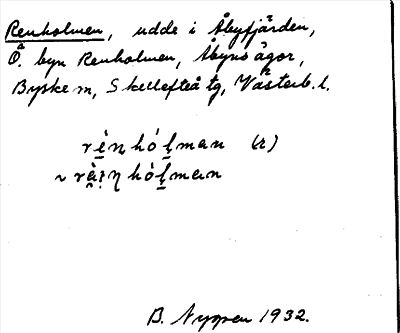 Renholmen, udde i Åbyfjärden,
Ö. byn Renholmen, Åbyns ägor,
Byske sn, Skellefteå tg, Västerb. l.
rènhólman (r)
~ rä̀:nhólman
B. Nygren 1932.